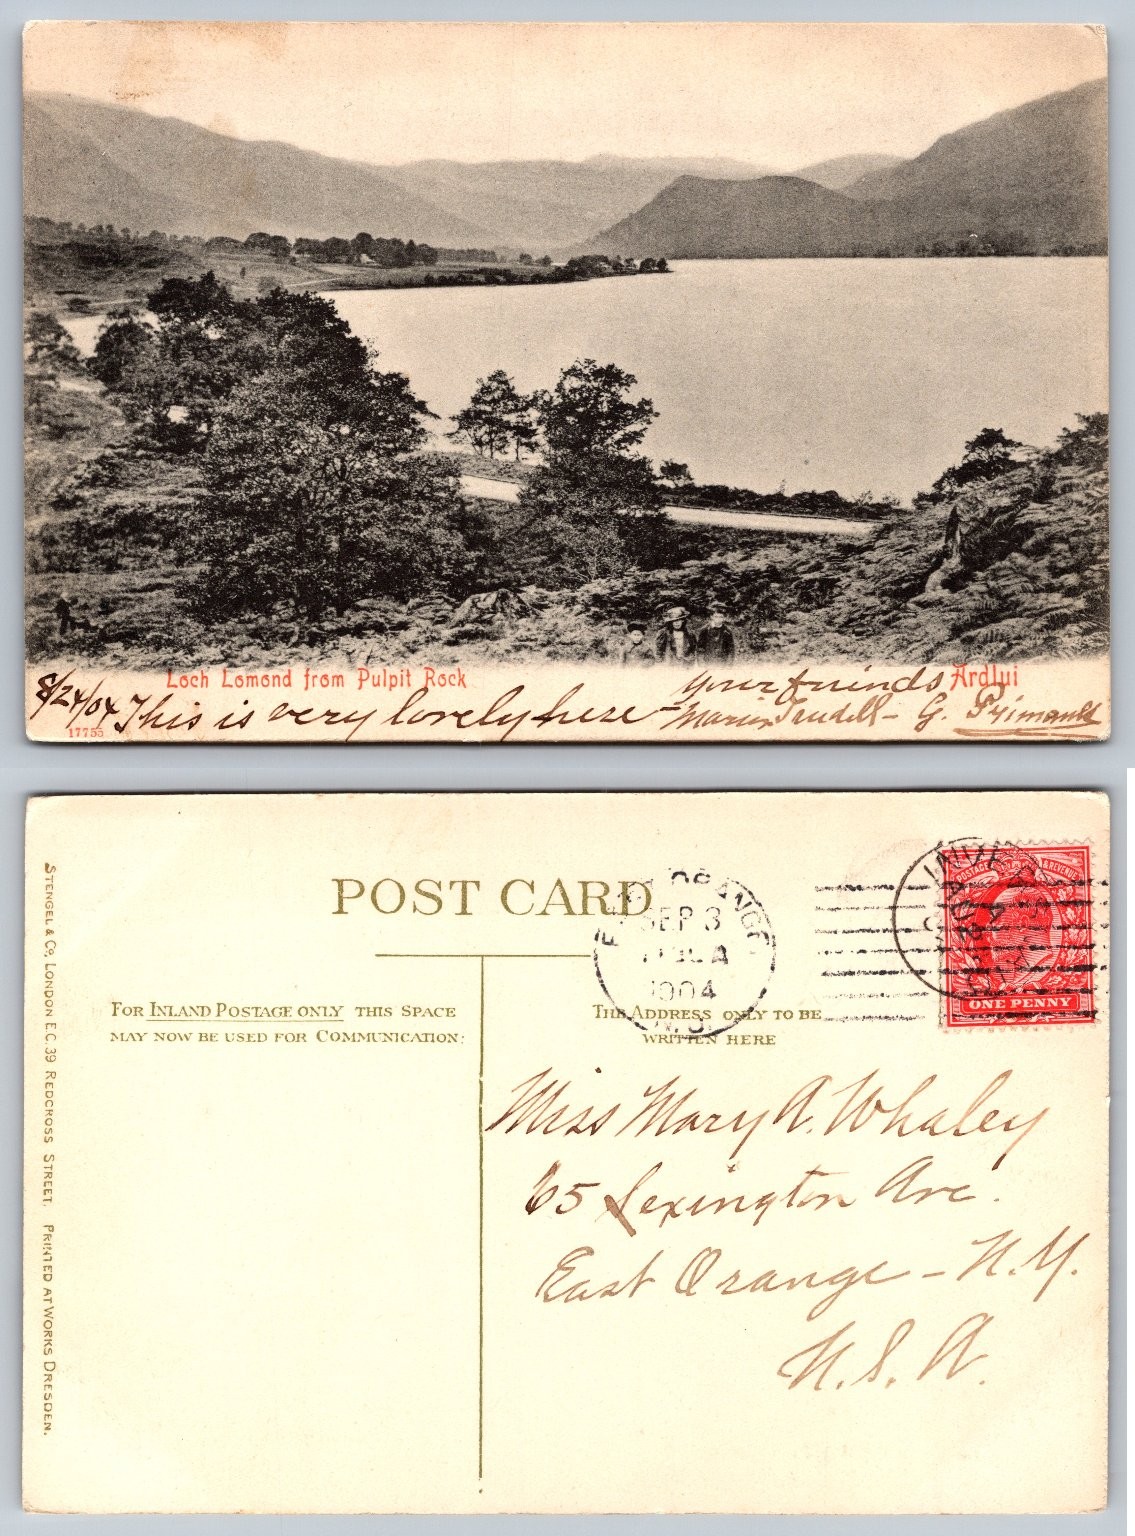 Loch Lomond from Pulpit Rock
Ardlui
8/24/04 This is very lovely here –
your friends
Marion Trudell – G. Primault
17755
STENGEL & Co, LONDON E.C. 39 REDCROSS STREET. PRINTED AT WORKS DRESDEN.
POST CARD
FOR INLAND POSTAGE ONLY THIS SPACE
MAY NOW BE USED FOR COMMUNICATION:
THE ADDRESS ONLY TO BE
WRITTEN HERE
ORANGE
SEP 3
1904
N.J.
POSTAGE & REVENUE
ONE PENNY
Miss Mary A. Whaley
65 Lexington Ave.
East Orange – N.Y.
U.S.A.